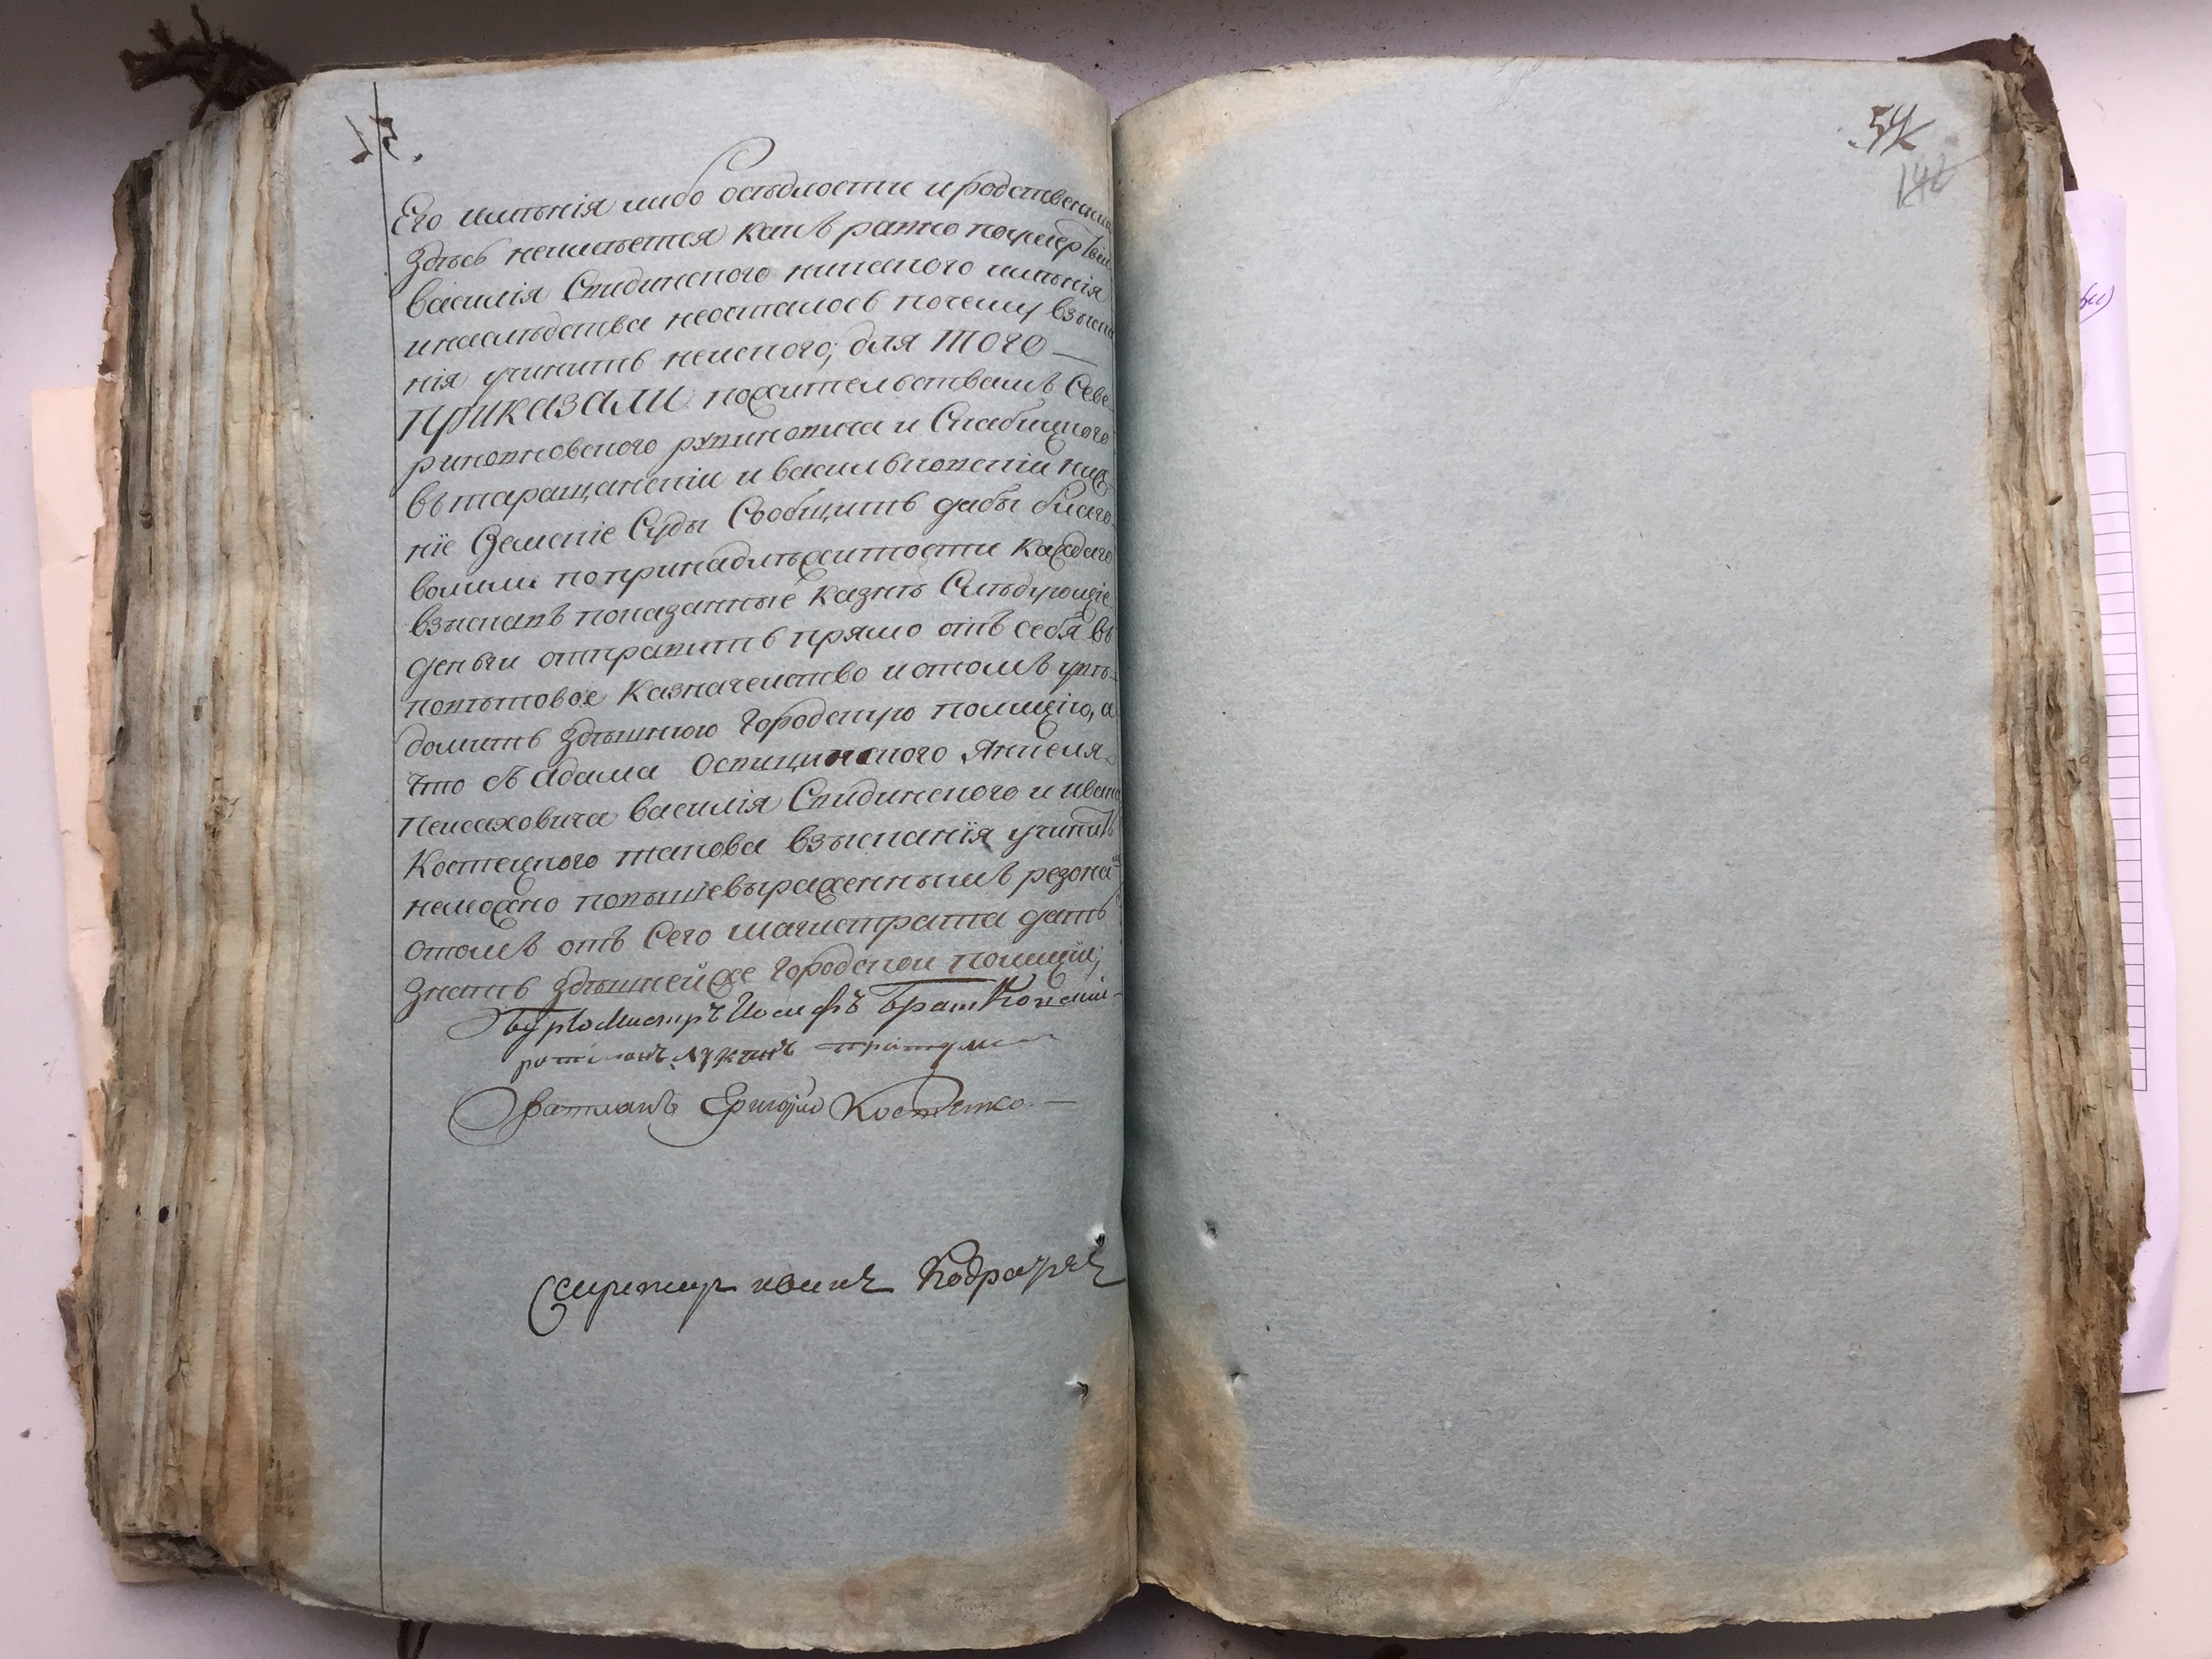 15.
Его имѣнія либо осѣдлости и родственник
здѣсь неимѣется какъ равно поумертвіи
василія Свидинского никакого имѣнія
инаслѣдства неосталось почему взыска
нія учинить нечего; для того —
приказали пожителствамъ Севе-
риновского и Слабицкого
вътаращанскій и василъковскій ниж
ніе Земскіе Суды Сообщить дабы благо-
волили попринадлѣжитости каждаго
взыскавъ показанные казнѣ Слѣдующіе
деньги отправить прямо отъ себя въ
повѣтовое казначейство и отомъ увѣ-
домить здѣшнюю Городскую полицію, а
что съ адама Янкеля
Пейсаховича василія Свидинского и ивана
Костецкого такова взысканія учинить
неможно повышевыраженнымъ резона
отомъ отъ Сего магистрата дать
знать здѣшнейже Городской полиціи;
Бурмистръ Иосифъ
ратманъ
Ратманъ Григорій Костенко —
Секретар иванъ
54
142